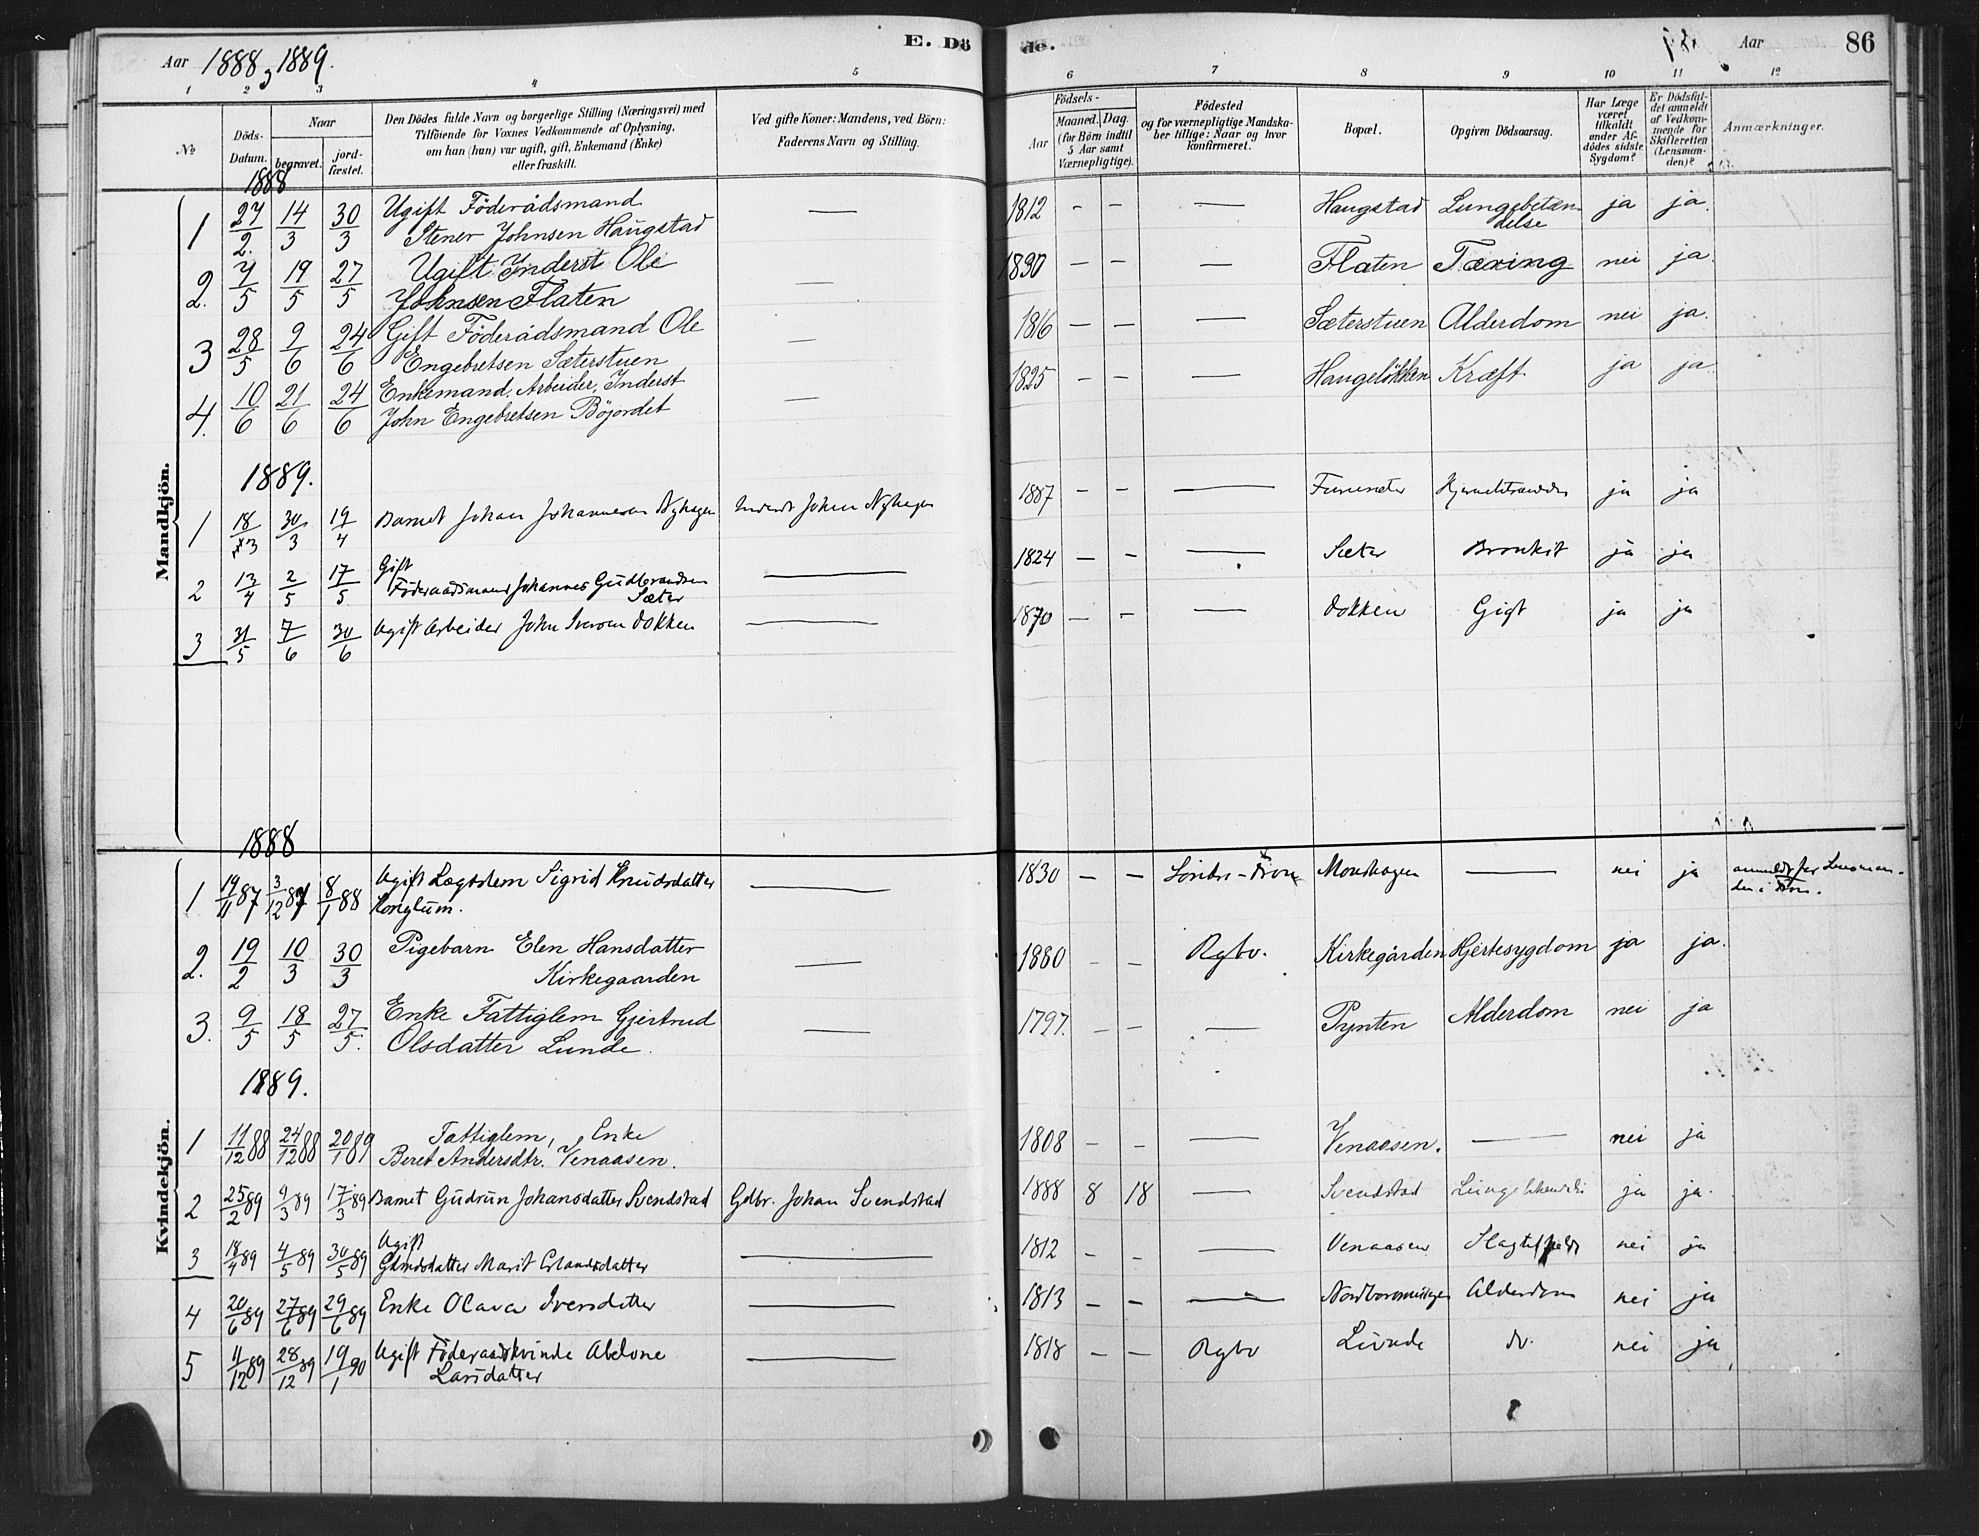 Aar 1888, 1889.
E. Dö de.
Aar 86
1 2 3 4 5 6 7 8 9 10 11 12
No.
Döds-Datum.
Naar
begravet.
jord-fæstet.
Den Dödes fulde Navn og borgerlige Stilling (Næringsvei) med
Tilföiende for Voxnes Vedkommende af Oplysning,
om han (hun) var ugift, gift, Enkemand (Enke)
eller fraskilt.
Ved gifte Koner: Mandens, ved Börn:
Faderens Navn og Stilling.
Födsels-
Aar
Maaned. Dag.
(for Börn indtil
5 Aar samt
Værnepligtige).
Födested
og for værnepligtige Mandska-
ber tillige: Naar og hvor
konfirmeret.
Bopæl.
Opgiven Dödsaarsag.
Har Læge
været
tilkaldt
under Af-
dödes sidste
Sygdom?
Er Dödsfal-
det anmeldt
af Vedkom-
mende for
Skifteretten
(Lensman-
den)?
Anmærkninger.
Mandkjön.
1888
1 27/2. 14/3 30/3 Ugift Föderådsmand — 1812 - - — Haugstad Lungebetæn- ja ja.
Stener Johnsen Haugstad delse
2. 7/5 19/5 27/5 Ugift Inderst Ole — 1830 - - — Flaten Tæring nei ja.
Johnsen Flaten
3 28/5 9/6 24/6 Gift Föderådsmand Ole — 1816 - - — Sæterstuen Alderdom nei ja.
Engebretsen Sæterstuen
4. 10/6 21/6 24/6 Enkemand. Arbeider, Inderst — 1825 - - — Haugelökken Kræft ja ja.
John Engebretsen Böjordet
1889.
1 18/3 30/3 19/4 Barnet Johan Johannesen Nyhagen Inderst Johan Nyhagen 1887 - - — ja ja
2 13/4 2/5 17/5 Gift — 1824 - - — Sæter Bronkit ja ja
Föderaadsmand Johannes Gudbrandsen
Sæter
3 31/5 7/6 30/6 Ugift Arbeider John Iversen Dokken — 1870 - - — Dokken Gigt ja ja
Kvindekjön.
1888
1 19/11 87 3/12 87 8/1 88 Ugift Lægdslem Sigrid Knudsdatter — 1830 - - Söndre-Fron Monshagen — nei ja anmeldt for Lensman-
Konglum. den i Fron.
2. 19/2 10/3 30/3 Pigebarn Elen Hansdatter — 1880 - - Rgbo. Kirkegården Hjertesygdom ja ja.
Kirkegaarden
3. 9/5 18/5 27/5. Enke Fattiglem Gjertrud — 1797. - - — Pynten Alderdom nei ja
Olsdatter Lunde.
1889.
1 11/12 88 24/12 88 20/1 89 Fattiglem, Enke — 1808 - - — Venaasen. — nei ja
Beret Andersdtr. Venaasen.
2 25/2 89 9/3 89 17/3 89 Barnet Gudrun Johansdatter Svendstad Gdbr. Johan Svendstad 1888 8 18 — Svendstad ja ja.
3 18/4 89 4/5 89 30/5 89 Ugift — 1812 - - — Venaasen Slagtilfælde nei ja
Gaardsdatter Marit Erlandsdatter
4 20/6 89 27/6 89 29/6 89 Enke Olava Iversdatter — 1813 - - — Alderdom nei ja
5 11/12 89 28/12 89 19/1 90 Ugift Föderaadskvinde Abelone — 1818 - - Rgbo Lunde do. nei ja
Larsdatter